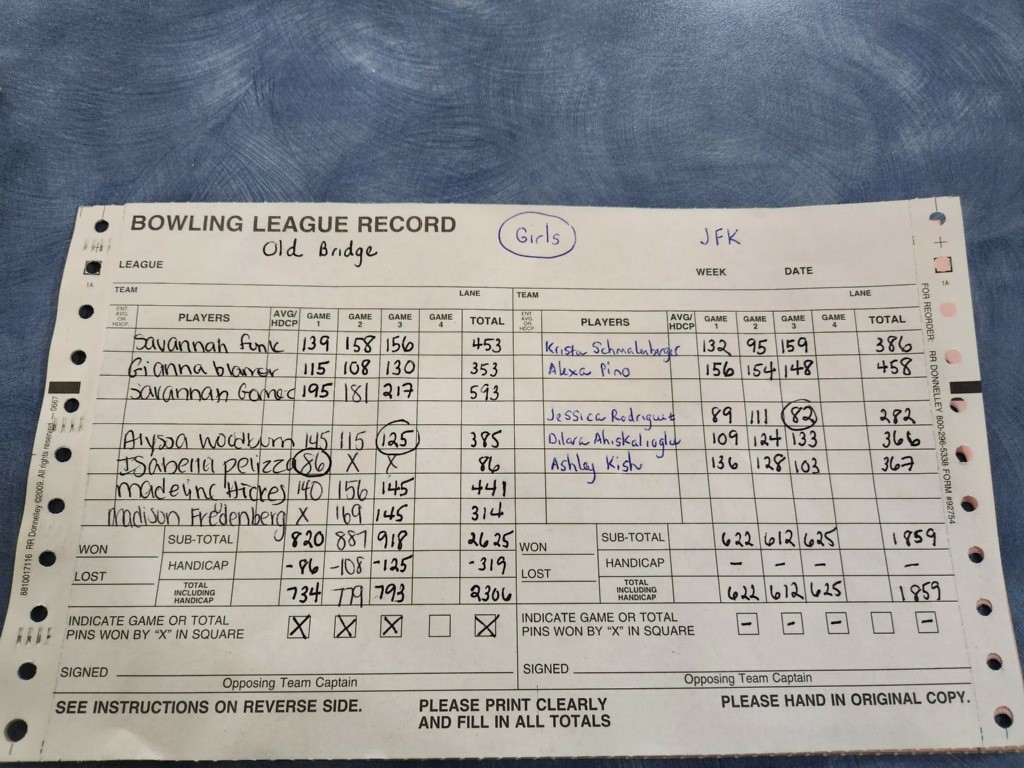 BOWLING LEAGUE RECORD Girls JFK
Old Bridge
LEAGUE WEEK DATE
TEAM LANE TEAM LANE
ENT. AVG. OR HDCP. PLAYERS AVG/ HDCP GAME 1 GAME 2 GAME 3 GAME 4 TOTAL ENT. AVG. OR HDCP. PLAYERS AVG/ HDCP GAME 1 GAME 2 GAME 3 GAME 4 TOTAL
Savannah Funk 139 158 156 453 Krista Schmalenberger 132 95 159 386
Gianna 115 108 130 353 Alexa Pino 156 154 148 458
Savannah Gomec 195 181 217 593
Jessica Rodriguez 89 111 82 282
Alyssa Woodburn 145 115 125 385 Dilara Ahiskalioglu 109 124 133 366
Isabella pelizza 86 X X 86 Ashley Kish 136 128 103 367
madeline Hickes 140 156 145 441
madison Fredenberg X 169 145 314
WON SUB-TOTAL 820 887 918 2625 WON SUB-TOTAL 622 612 625 1859
LOST HANDICAP -86 -108 -125 -319 LOST HANDICAP - - - -
TOTAL INCLUDING HANDICAP 734 779 793 2306 TOTAL INCLUDING HANDICAP 622 612 625 1859
INDICATE GAME OR TOTAL INDICATE GAME OR TOTAL
PINS WON BY "X" IN SQUARE X X X X PINS WON BY "X" IN SQUARE - - - -
SIGNED SIGNED
Opposing Team Captain Opposing Team Captain
SEE INSTRUCTIONS ON REVERSE SIDE. PLEASE PRINT CLEARLY PLEASE HAND IN ORIGINAL COPY.
AND FILL IN ALL TOTALS
1A
1A
FOR REORDER: RR DONNELLEY 800-296-5338 FORM #92754
8810017116 RR Donnelley ©2009. All rights reserved. 0667